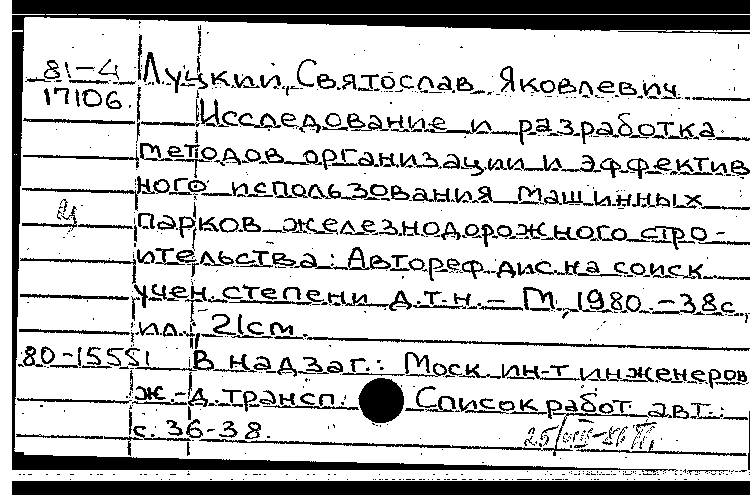 81-4 Луцкий, Святослав Яковлевич
17106. Исследование и разработка
методов организации и эффектив
ного использования машинных
парков железнодорожного стро-
ительства: Автореф. дис. на соиск.
учен. степени д.т.н. - М, 1980. - 38с,
ил., 21см.
80-15551 В надзаг.: Моск. ин-т инженеров
ж.-д. трансп. Список работ авт.:
с. 36-38.